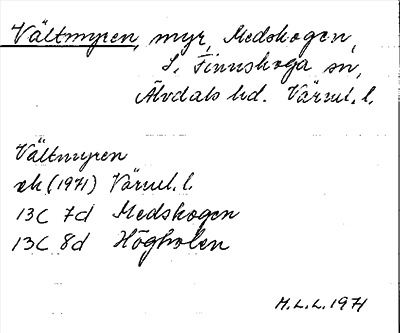 Vältmyren, myr, Medskogen,
S. Finnskoga sn,
Älvdals hd. Värml. l.
Vältmyren
ek (1971) Värml. l.
13C 7d Medskogen
13C 8d Högholen
M.L.L. 1971